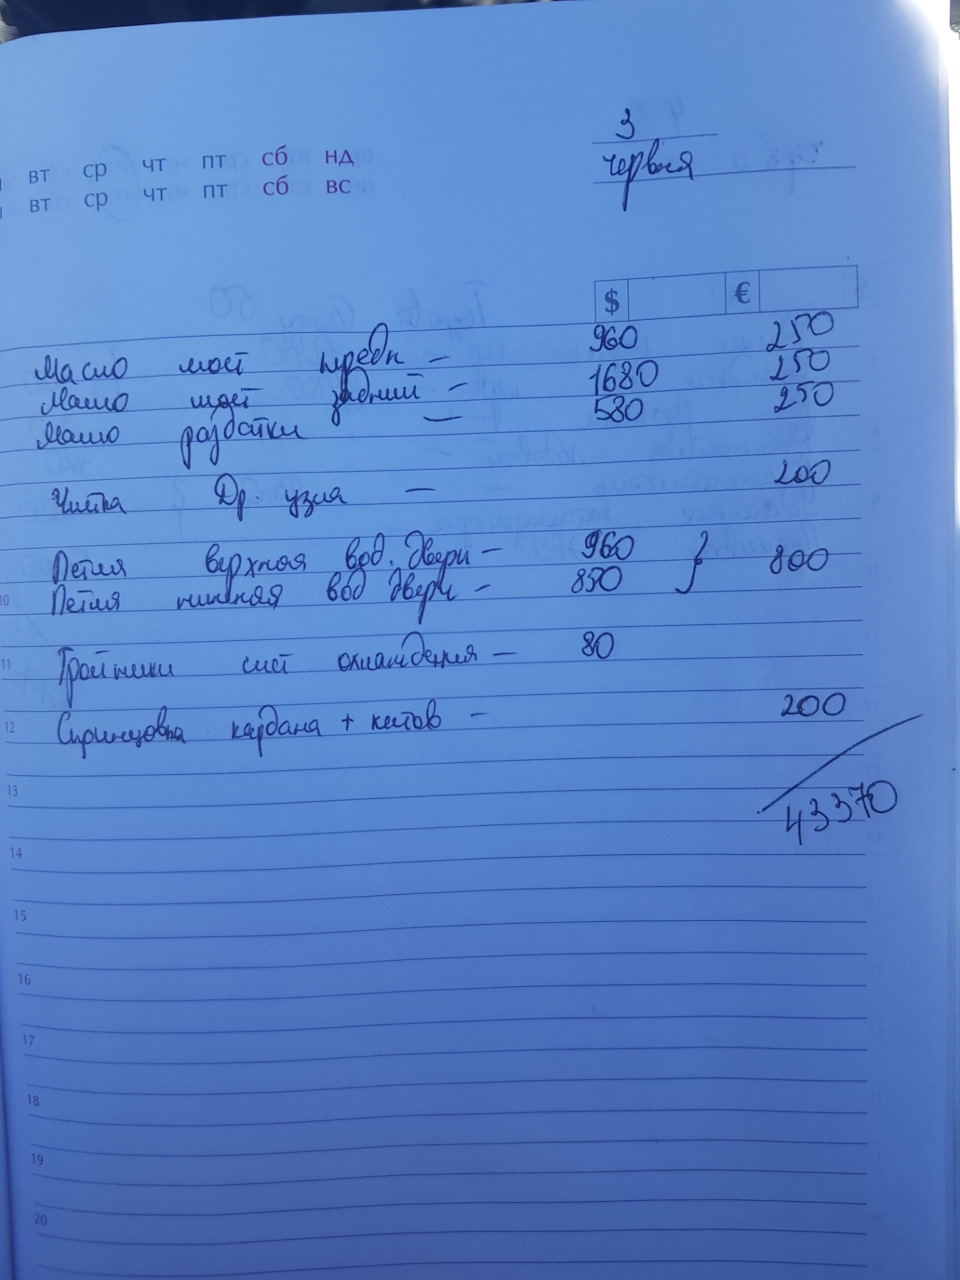 вт ср чт пт сб нд
вт ср чт пт сб вс
3
червня
$ €
Масло мост передн — 960 250
Масло мост задний — 1680 250
Масло раздатки — 580 250
Чистка Др. узла — 200
Петля верхная вод. двери — 960 } 800
10 Петля нижняя вод двери — 850
11 Тройники сист охлаждения — 80
12 Шприцовка кардана + китов — 200
13
43370
14
15
16
17
18
19
20